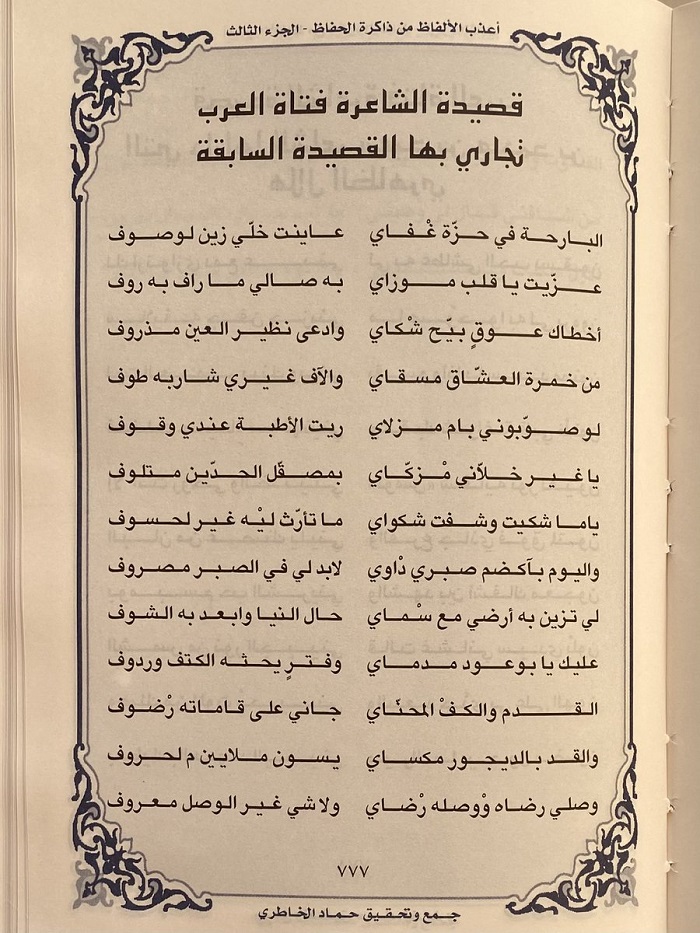 أعذب الألفاظ من ذاكرة الحفاظ - الجزء الثالث
قصيدة الشاعرة فتاة العرب
تجاري بها القصيدة السابقة
البارحة في حزّة غْفاي عاينت خلّي زين لوصوف
عزّيت يا قلب موزاي به صالي ما راف به روف
أخطاك عوقٍ بيّح شْكاي وادعى نظير العين مذروف
من خمرة العشّاق مسقاي والآف غيري شاربه طوف
لو صوّبوني بام مزلاي ريت الأطبة عندي وقوف
يا غير خلاّني مْزكّاي بمصقّل الحدّين متلوف
ياما شكيت وشفت شكواي ما تأرّث ليْه غير لحسوف
واليوم بآكضم صبري دْاوي لابد لي في الصبر مصروف
لي تزين به أرضي مع سْماي حال النيا وابعد به الشوف
عليك يا بوعود مدماي وفترٍ يحثه الكتف وردوف
القدم والكفْ المحنّاي جاني على قاماته رْضوف
والقد بالديجور مكساي يسون ملايين م لحروف
وصلي رضاه وْوصله رْضاي ولاشي غير الوصل معروف
٧٧٧
جمع وتحقيق حماد الخاطري